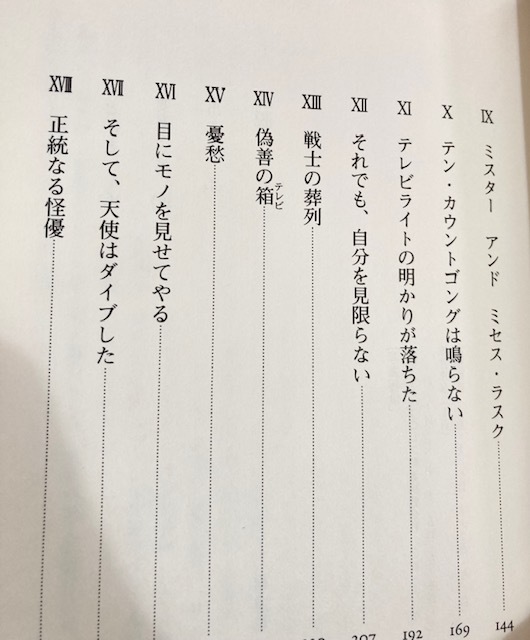 Ⅸ ミスター アンド ミセス・ラスク 144
Ⅹ テン・カウントゴングは鳴らない 169
Ⅺ テレビライトの明かりが落ちた 192
Ⅻ それでも、自分を見限らない 207
XIII 戦士の葬列
XIV 偽善の箱 テレビ
XV 憂愁
XVI 目にモノを見せてやる
XVII そして、天使はダイブした
XVIII 正統なる怪優